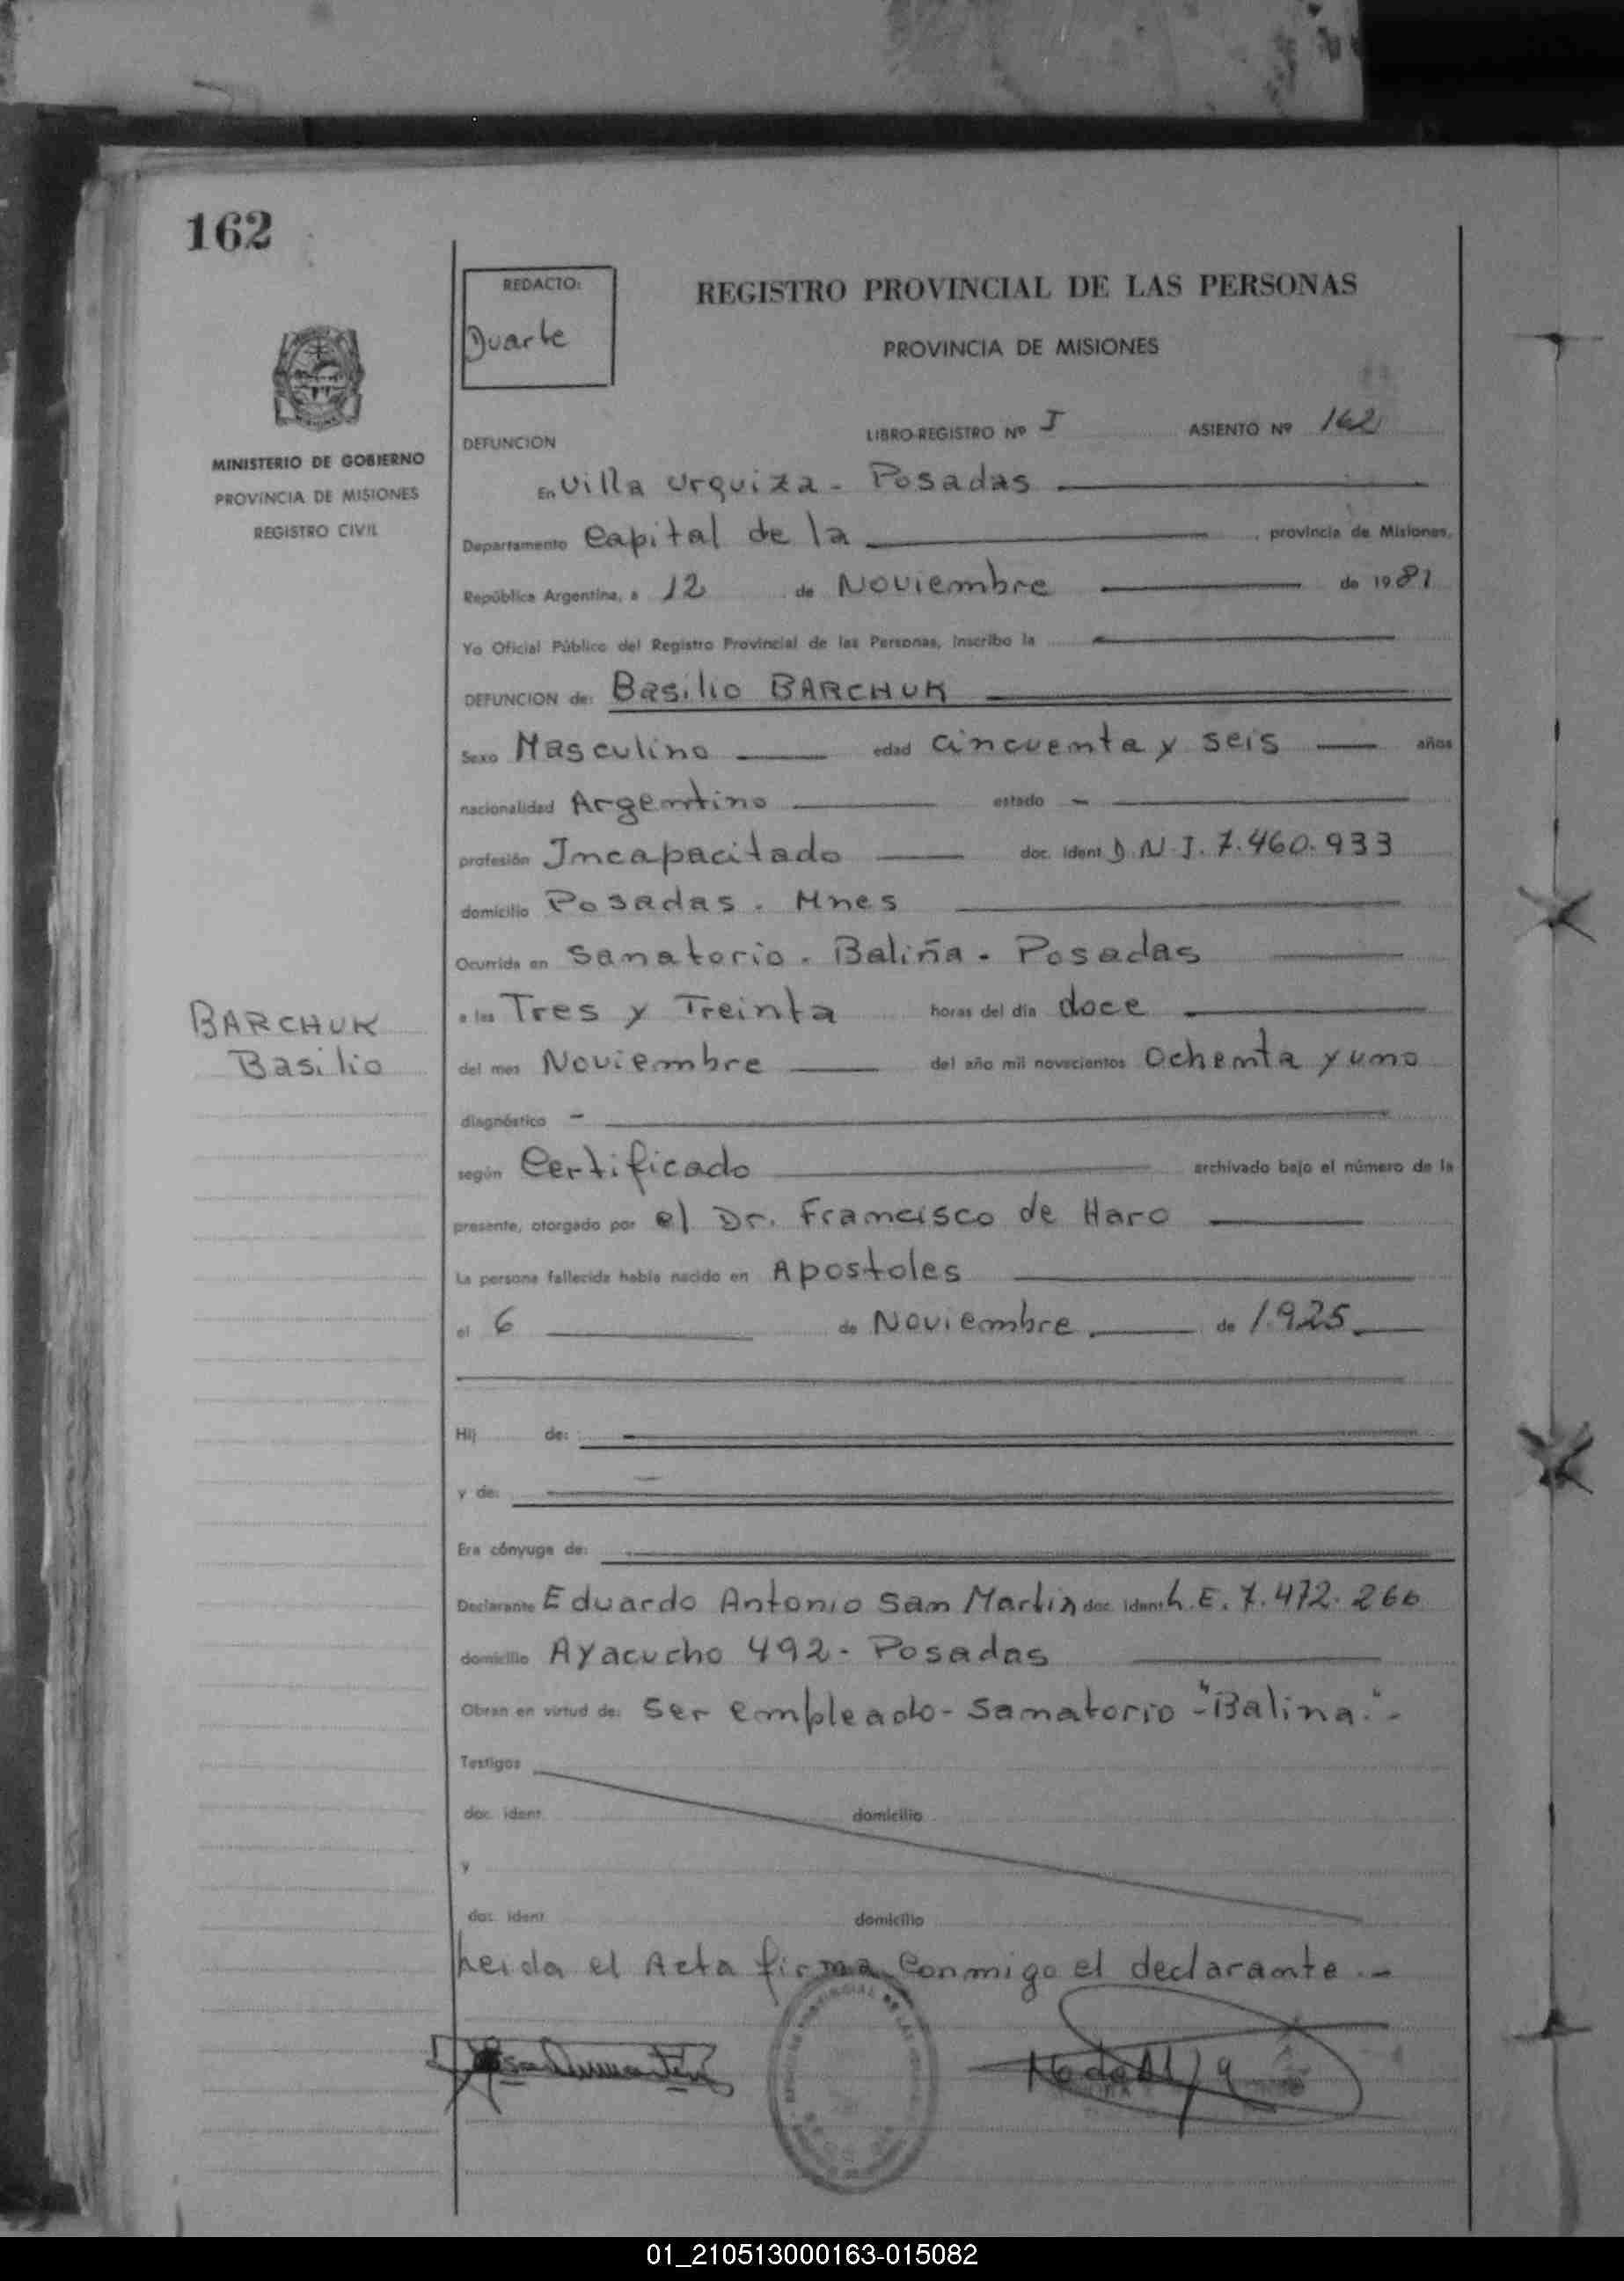 162
REDACTO:
Duarte
REGISTRO PROVINCIAL DE LAS PERSONAS
PROVINCIA DE MISIONES
MINISTERIO DE GOBIERNO
PROVINCIA DE MISIONES
REGISTRO CIVIL
DEFUNCION LIBRO-REGISTRO Nº I ASIENTO Nº 162
En Villa Urquiza - Posadas
Departamento Capital de la , provincia de Misiones,
República Argentina, a 12 de Noviembre de 1981
Yo Oficial Público del Registro Provincial de las Personas, inscribo la
DEFUNCION de: Basilio BARCHUK
Sexo Masculino edad cincuenta y seis años
nacionalidad Argentino estado -
profesión Incapacitado doc. ident D.N.I. 7.460.933
domicilio Posadas. Mnes
Ocurrida en Sanatorio. Baliña. Posadas
a las Tres y Treinta horas del día doce
BARCHUK
Basilio
del mes Noviembre del año mil novecientos Ochenta y uno
diagnóstico -
según Certificado archivado bajo el número de la
presente, otorgado por el Dr. Francisco de Haro
La persona fallecida había nacido en Apostoles
el 6 de Noviembre de 1.925
Hij de:
y de:
Era cónyuge de:
Declarante Eduardo Antonio San Martin doc. ident L.E. 7.472.266
domicilio Ayacucho 492 - Posadas
Obran en virtud de: Ser empleado - Sanatorio - "Balina". -
Testigos
doc. ident. domicilio
y
doc. ident. domicilio
Leida el Acta firma conmigo el declarante. -
01_210513000163-015082